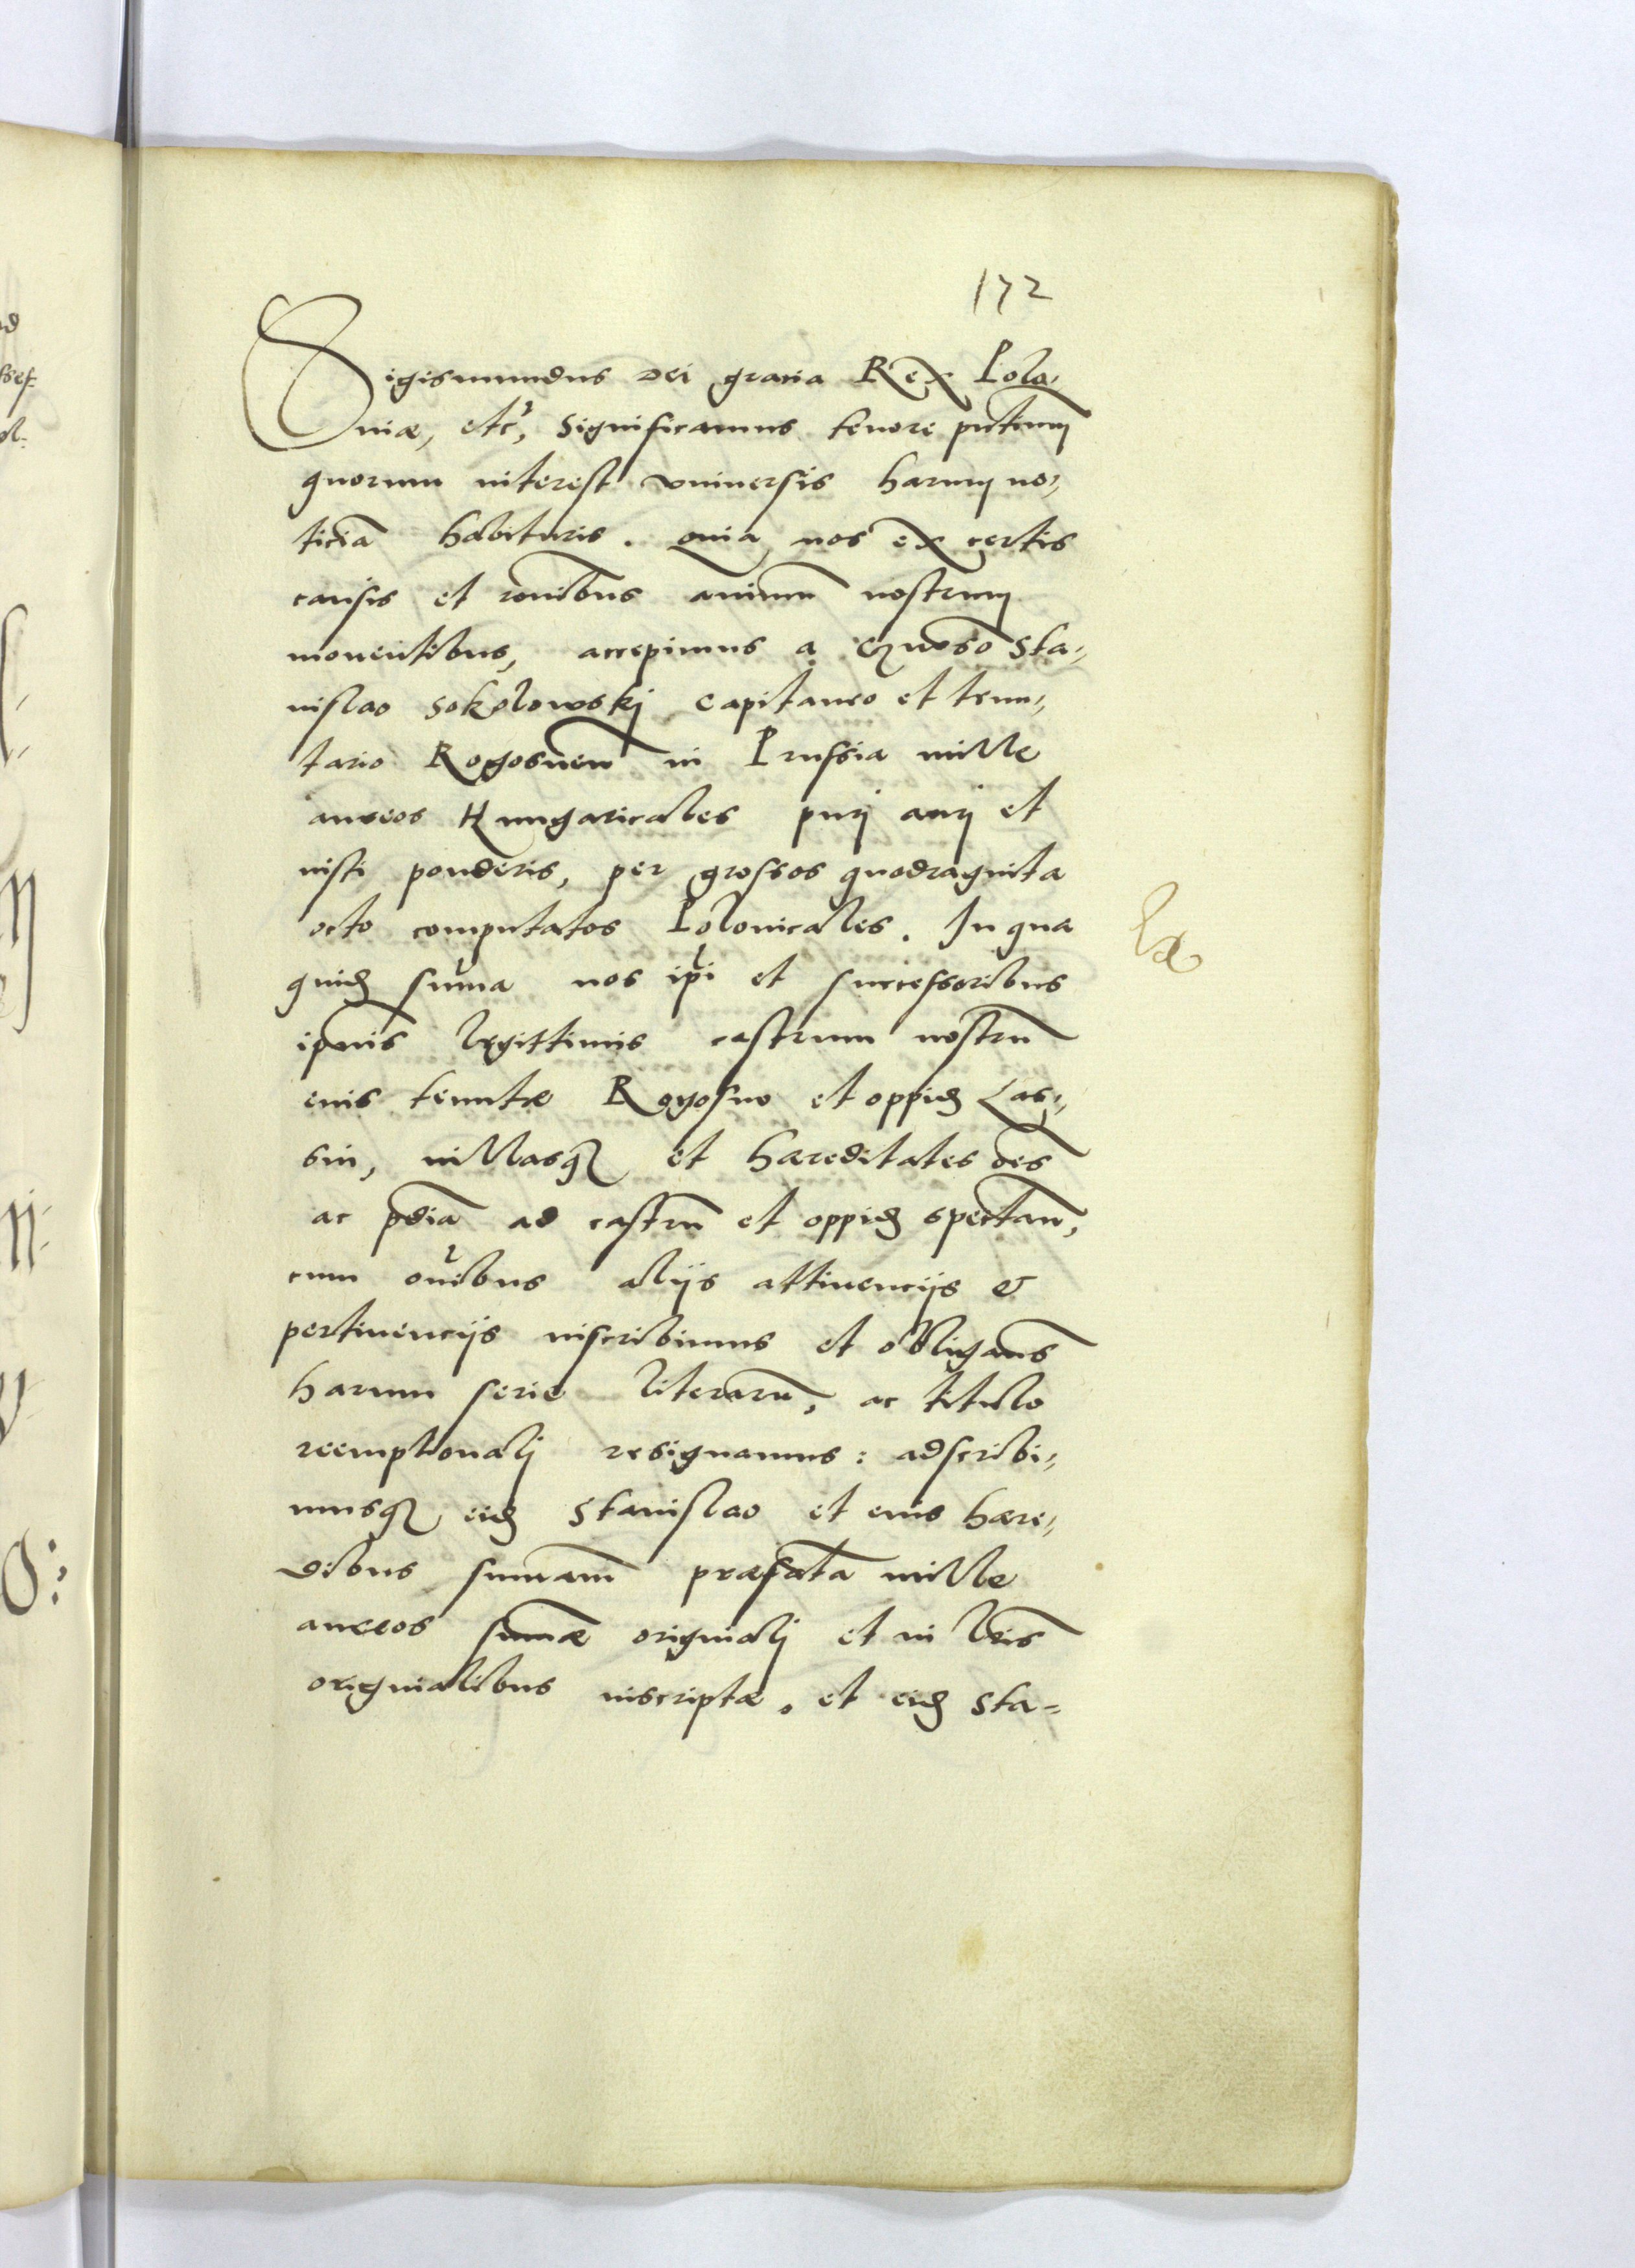 172
Sigismundus Dei gratia Rex Polo,
niæ, etc, significamus tenore pñtium
quorum interest vniuersis harum no,
ticiã habituris. Quia nos ex certis
causis et rõnibus animũ nostrum
mouentibus, accepimus a gñoso Sta,
nislao Sokolowskj Capitaneo et tenu,
tario Rogosneñ in Prussia mille
aureos Hungaricales purj aurj et
iusti ponderis, per grossos quadraginta
octo computatos Polonicales. In qua
quidẽ sum̃a nos ip̃i et successoribus
ip̃ius legittimis castrum nostrũ
eius tenutæ Rogosno et oppidũ Las,
sin, villasq₃ et hæreditates oẽs
ac p̃dia ad castrũ et oppidũ spectañ,
cum om̃ibus alijs attinencijs &
pertinencijs inscribimus et obligam̃s
harum serie literarũ, ac titulo
reemptionalj resignamus: adscribi,
musq₃ eidẽ Stanislao et eius hære,
dibus summam præfatã mille
aureos sum̃æ originalj et in lr̃is
originalibus inscriptæ, et eidẽ Sta=